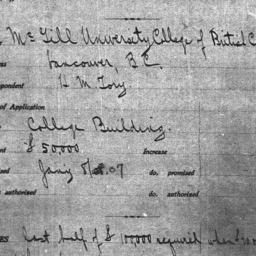 McGill University College of British C
Vancouver, B.C.
pondent H M Tory
of Application
College Building.
$50,000 Increase
Jany 8/07 do. promised
authorized do. authorized
last half of $100,000 required when